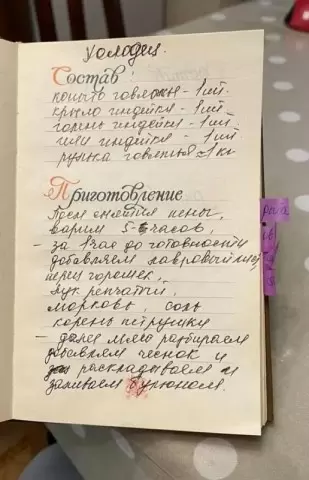 Холодец.
Состав:
копыто говяжье - 1 шт.
крыло индейки - 1 шт.
голень индейки - 1 шт
шея индейки - 1 шт
рулька говяжья ≈ 1 кг
Приготовление
пены,
варим 5-6 часов,
- за 1 час до готовности
добавляем лавровый лист,
перец горошек,
лук репчатый,
морковь, соль
корень петрушки
- далее мясо разбираем
добавляем чеснок и
раскладываем и
заливаем бульоном.